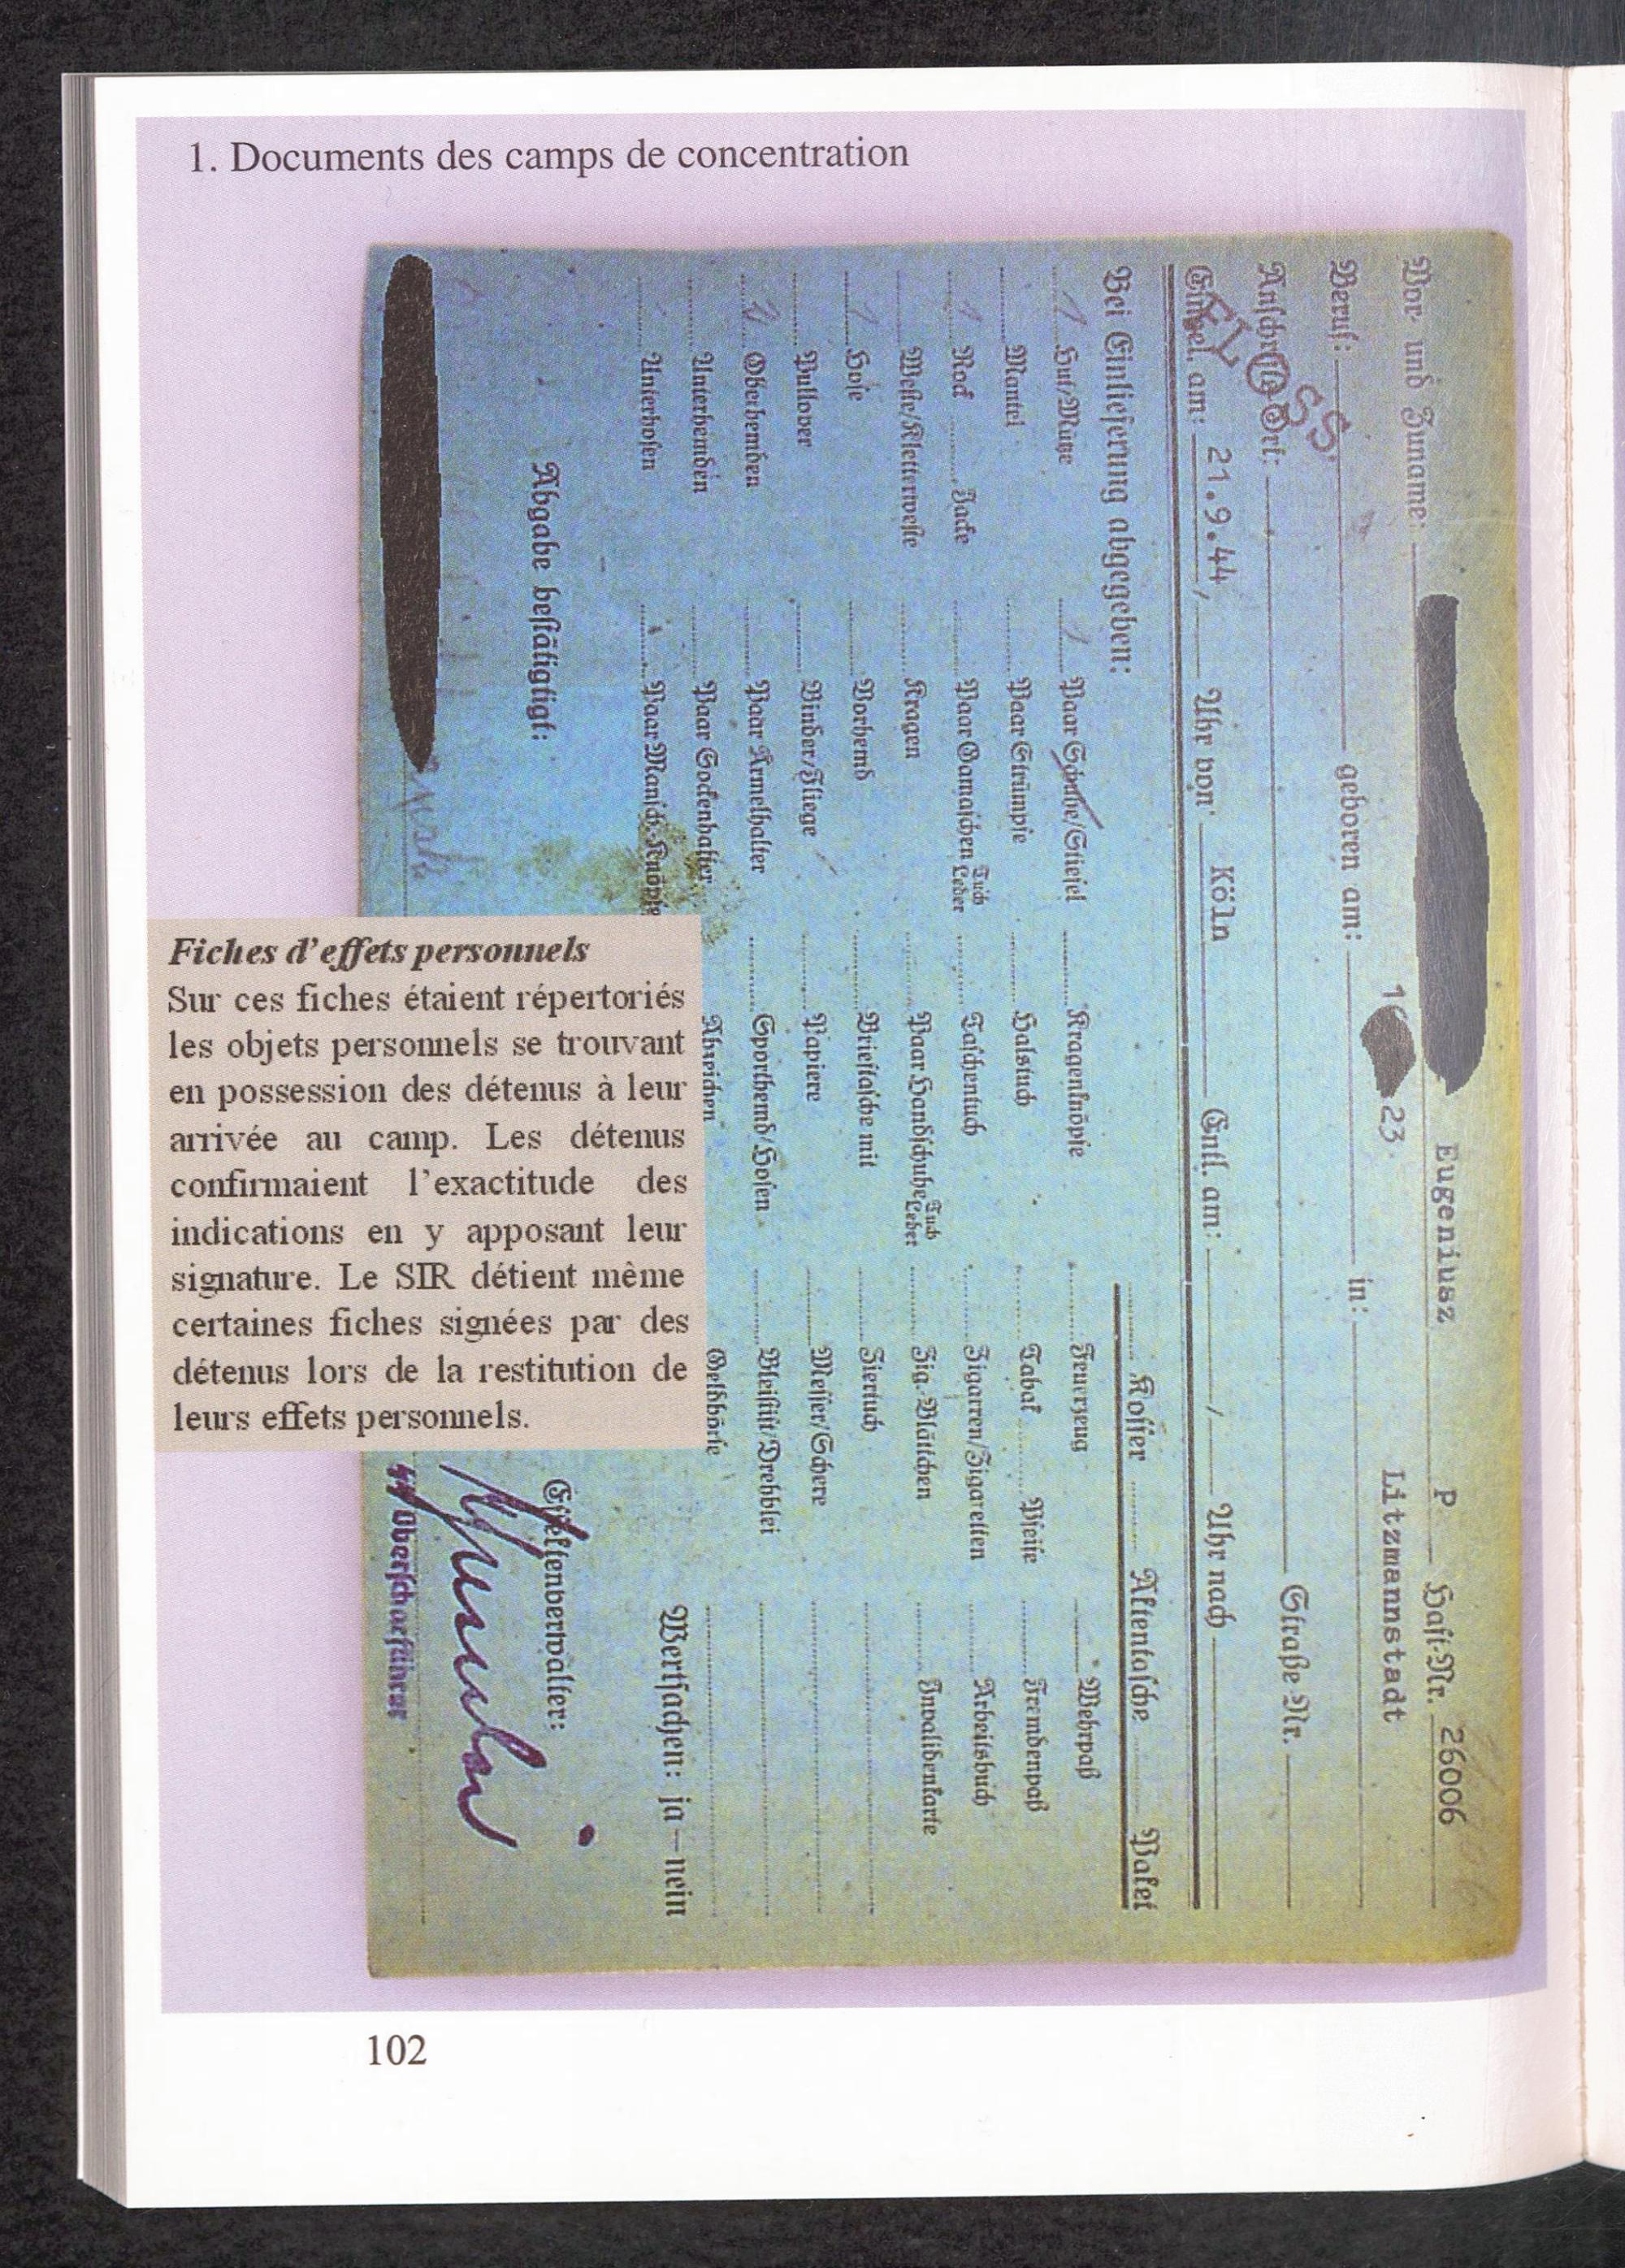 1. Documents des camps de concentration
Vor- und Zuname: Eugeniusz P Haft-Nr. 26006
Beruf: geboren am: 1 23. in: Litzmannstadt
Anschrift: Ort: Straße Nr.
FLOSS.
Eingel. am: 21.9.44 / Uhr von: Köln Entl. am: / Uhr nach
Bei Einlieferung abgegeben: Koffer Aktentasche Paket
1 Hut/Mütze 1 Paar Schuhe/Stiefel Kragenknöpfe Feuerzeug Wehrpaß
Mantel Paar Strümpfe Halstuch Tabak Pfeife Fremdenpaß
1 Rock Jacke Paar Gamaschen Tuch Leder Taschentuch Zigarren/Zigaretten Arbeitsbuch
Weste/Kletterweste Kragen Paar Handschuhe Tuch Leder Zig.-Blättchen Invalidenkarte
1 Hose Vorhemd Brieftasche mit Ziertuch
Pullover Binder/Fliege Papiere Messer/Schere
2 Oberhemden Paar Ärmelhalter Sporthemd/Hosen Bleistift/Drehblei
Unterhemden Paar Sockenhalter Abzeichen Geldbörse
Unterhosen Paar Mansch.-Knöpfe Wertsachen: ja – nein
Abgabe bestätigt: Effektenverwalter:
Oberscharführer
Fiches d'effets personnels
Sur ces fiches étaient répertoriés
les objets personnels se trouvant
en possession des détenus à leur
arrivée au camp. Les détenus
confirmaient l'exactitude des
indications en y apposant leur
signature. Le SIR détient même
certaines fiches signées par des
détenus lors de la restitution de
leurs effets personnels.
102